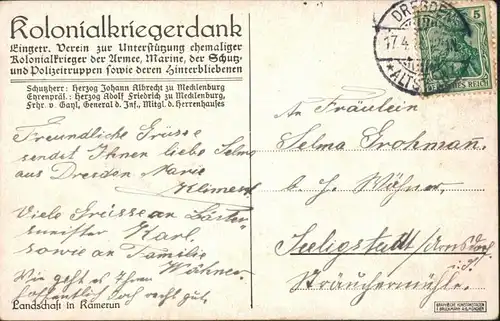 Kolonialkriegerdank
Eingetr. Verein zur Unterstützung ehemaliger
Kolonialkrieger der Armee, Marine, der Schutz-
und Polizeitruppen sowie deren Hinterbliebenen
Schutzherr: Herzog Johann Albrecht zu Mecklenburg
Ehrenpräs.: Herzog Adolf Friedrich zu Mecklenburg,
Frhr. v. Gayl, General d. Inf., Mitgl. d. Herrenhauses
Freundliche Grüsse
sendet Ihnen liebe Selma
aus Dresden Marie
Klimert
Viele Grüsse an
Karl
sowie an Familie
Wähner
Wie geht es Ihnen
hoffentlich doch recht gut
Landschaft in Kamerun
DRESDEN
17.4.
*ALTST.
5
DEUTSCHES REICH
An Fräulein
Selma Grohmann
b. H. Wähner
Seeligstadt/Arnsdorf
i. S.
Sträuchermühle.
GRAPHISCHE KUNSTANSTALTEN
F. BRUCKMANN A.G. MÜNCHEN